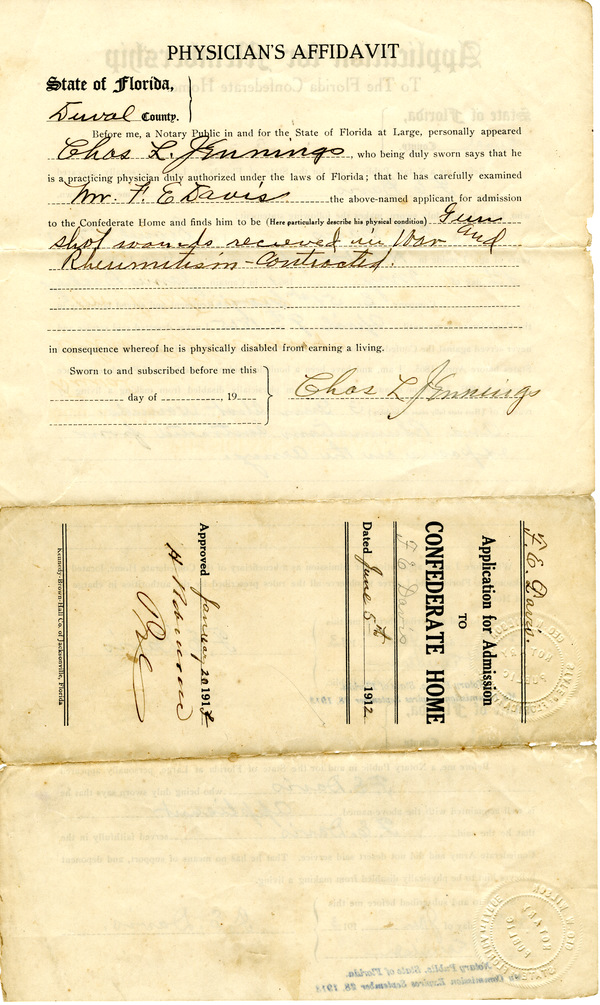 PHYSICIAN'S AFFIDAVIT
State of Florida,
Duval County.
Before me, a Notary Public in and for the State of Florida at Large, personally appeared
Chas L. Jennings, who being duly sworn says that he
is a practicing physician duly authorized under the laws of Florida; that he has carefully examined
Mr. F. E Davis the above-named applicant for admission
to the Confederate Home and finds him to be (Here particularly describe his physical condition) Gun
shot wounds recieved in War and
Rheumitism - Contracted.
in consequence whereof he is physically disabled from earning a living.
Sworn to and subscribed before me this
day of , 19
Chas L Jennings
F. E. Davis.
Application for Admission
TO
CONFEDERATE HOME
F E Davis
Dated June 5th 1912
Approved January 20 191
H Robinson
Kennedy-Brown-Hall Co. of Jacksonville, Florida